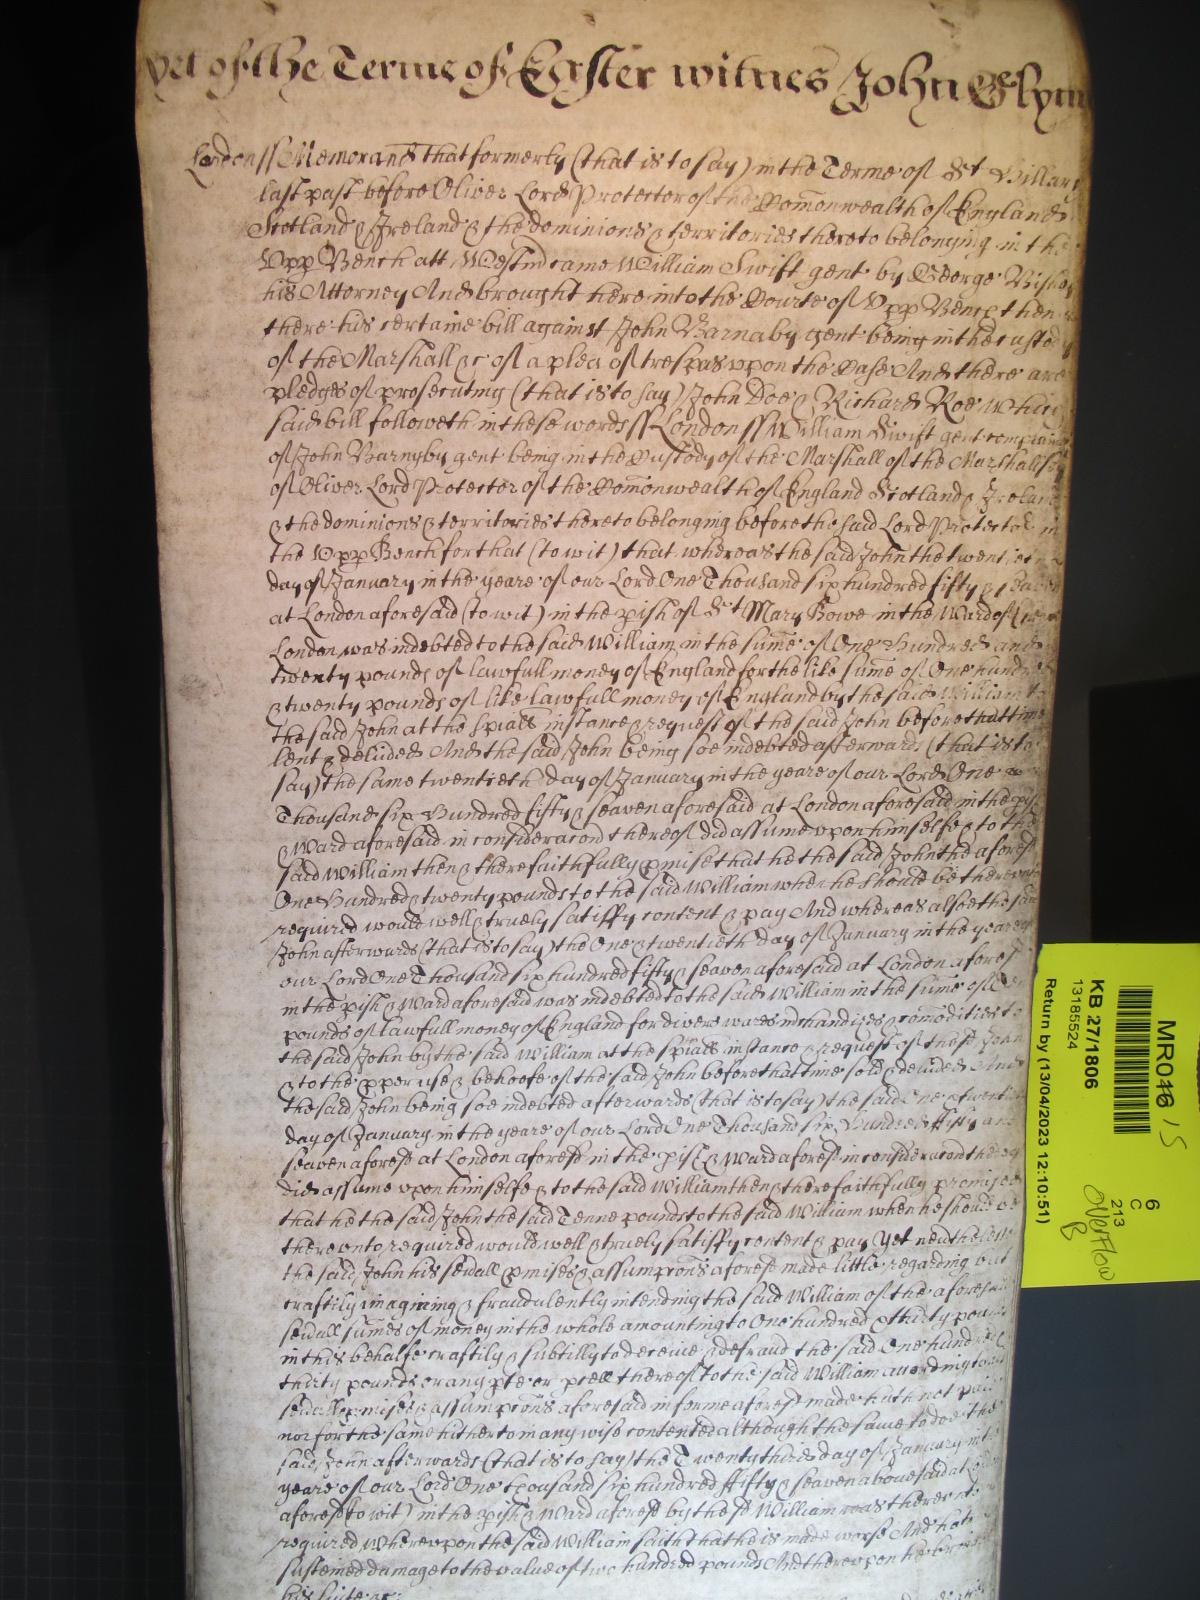 yet of the Terme of Easter witnes John Glynn
London ss Memorand that formerly (that is to say) in the Terme of St Hillary
last past before Oliver Lord Protector of the Comonwealth of England
Scotland & Ireland & the dominions & territories thereto belonging in the
Upp Bench att Westm came William Swift gent by George
his Attorney And brought here into the Courte of Upp Bench then
there his certaine bill against John Barnaby gent being in the custody
of the Marshall &c of a plea of trespas upon the Case And there are
pledges of prosecuting (that is to say) John Doe & Richard Roe Which
said bill followeth in these words ss London ss William Swift gent complaines
of John Barnyby gent being in the Custody of the Marshall of the Marshallsey
of Oliver Lord Protector of the Comonwealth of England Scotland & Ireland
& the dominions & territories thereto belonging before the said Lord Protector in
the Upp Bench for that (to wit) that whereas the said John the twentieth
day of January in the yeare of our Lord One Thousand six hundred fifty &
at London aforesaid (to wit) in the pish of St Mary Bowe in the Ward of
London was indebted to the said William in the sume of One Hundred and
twenty pounds of lawfull money of England for the like sume of One hundred
& twenty pounds of like lawfull money of England by the said William to
the said John at the spiall instance & request of the said John before that time
lent & delivd And the said John being soe indebted afterwards (that is to
say) the same twentieth day of January in the yeare of our Lord One
Thousand six Hundred fifty & seaven aforesaid at London aforesaid in the pish
& Ward aforesaid in consideracon thereof did assume upon himselfe & to the
said William then & there faithfully pmise that he the said John the aforesd
One Hundred & twenty pounds to the said William when he should be thereunto
required would well & truely satisfy content & pay And whereas alsoe the said
John afterwards (that is to say) the One & twentieth day of January in the yeare of
our Lord One Thousand six hundred fifty & seaven aforesaid at London aforesd
in the pish & Ward aforesaid was indebted to the said William in the sume of
pounds of lawfull money of England for divers wares mchandizes & comodities to
the said John by the said William at the spiall instance & request of the sd John
& to the pper use & behoofe of the said John before that time sold & delivd And
the said John being soe indebted afterwards (that is to say) the said One & twentieth
day of January in the yeare of our Lord One Thousand six Hundred fifty and
seaven aforesd at London aforesd in the pish & Ward aforesd in consideracon thereof
did assume upon himselfe & to the said William then & there faithfully promise
that he the said John the said Tenne pounds to the said William when he should be
thereunto required would well & truely satisfy content & pay Yet nevtheles
the said John his sevall pmises & assumpcons aforesd made little regarding but
craftily imagining & fraudulently intending the said William of the aforesaid
sevall sumes of money in the whole amounting to One hundred & thirty pounds
in this behalfe craftily & subtilly to deceive & defraud the said One hundred &
thirty pounds or any pte or pcell thereof to the said William according to his
sevall pmises & assumpcons aforesaid in forme aforesd made hath not paid
nor for the same hitherto in any wise contented although the same to doe the
said John afterwards (that is to say) the Twenty third day of January in the
yeare of our Lord One thousand six hundred ffifty & seaven abovesaid at London
aforesd (to wit) in the pish & Ward aforesd by the sd William was thereunto
required Whereupon the said William saith that he is made worse And hath
susteined damage to the value of two hundred pounds And thereupon he bringeth
his suite &c
MR016
15
KB 27/1806
13185524
Return by (13/04/2023 12:10:51)
6
C
213
Overflow
B